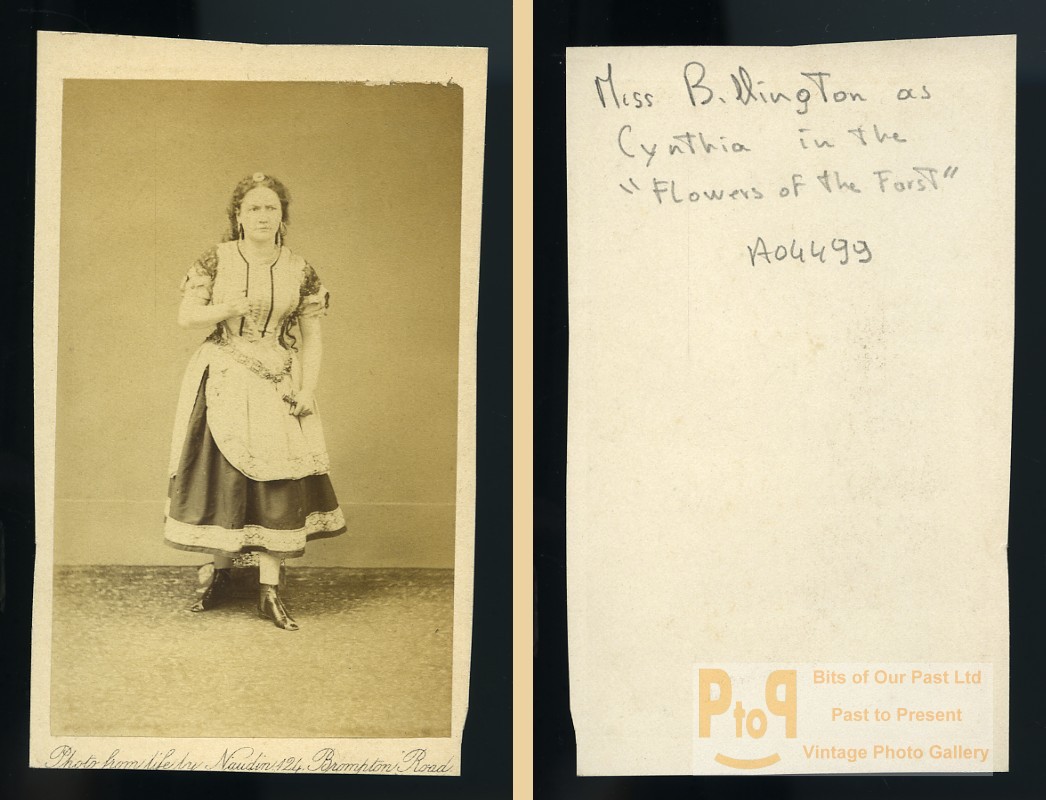 Photo from life by Naudin 124, Brompton Road
Miss B. llington as
Cynthia in the
"Flowers of the Forst"
A04499
PtoP
Bits of Our Past Ltd
Past to Present
Vintage Photo Gallery